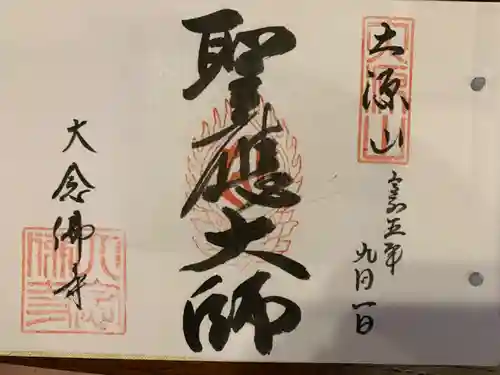 大源山
令和五年
九月一日
聖應大師
大念佛寺